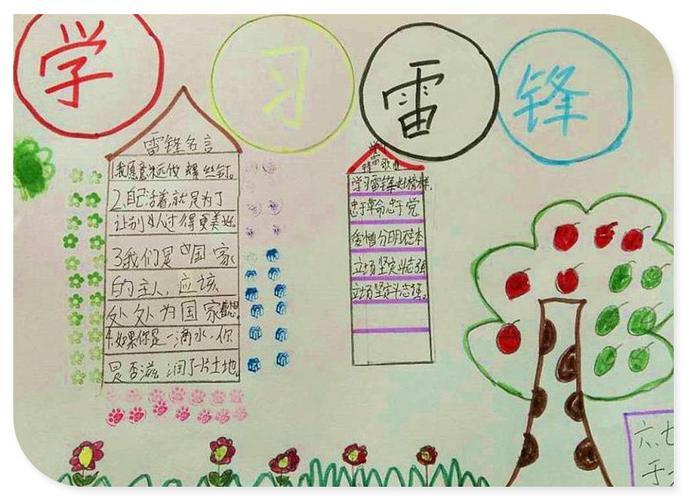 学习雷锋
雷锋名言
1我愿意永远做螺丝钉。
2.自己活着,就是为了
让别人过得更美好
3我们是中国国家
的主人,应该
处处为国家着想
4.如果你是一滴水,你
是否滋润了一片土地
学习雷锋好榜样,
忠于革命忠于党
爱憎分明不忘本
立场坚定斗志强
立场坚定斗志强。
六七
于